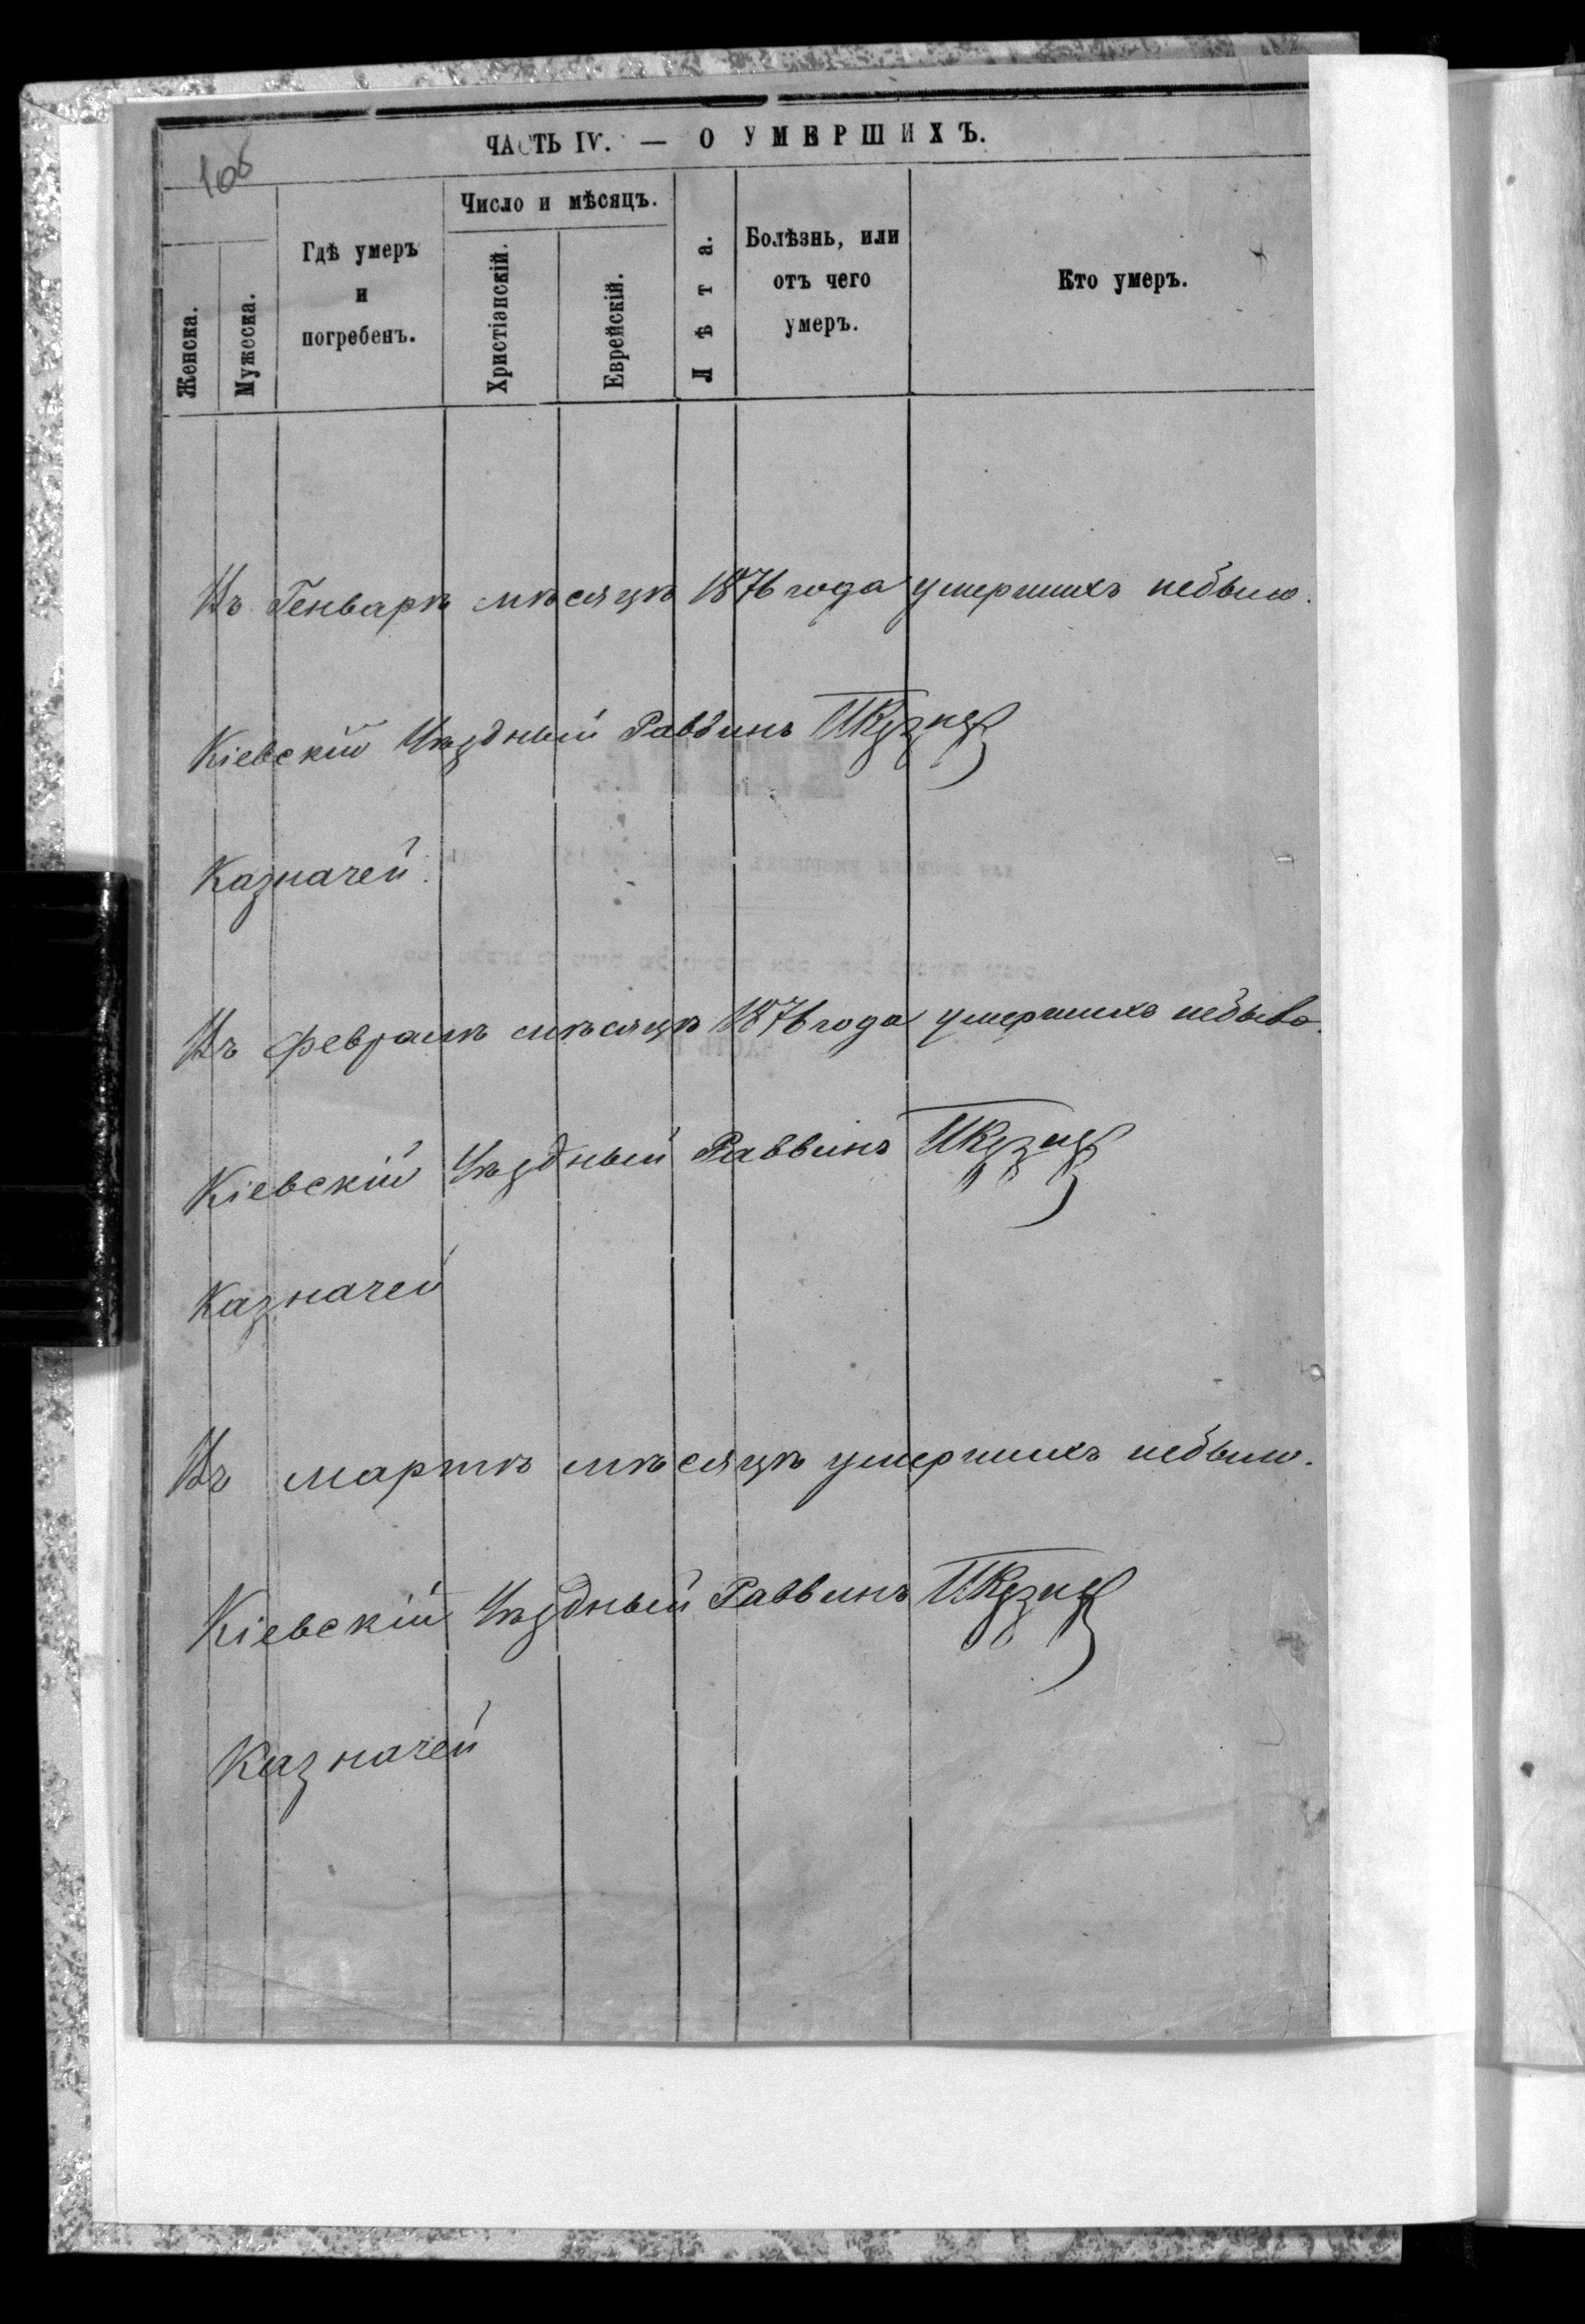 108
ЧАСТЬ IV. — О УМЕРШИХЪ.
Женска.
Мужеска.
Гдѣ умеръ
и
погребенъ.
Число и мѣсяцъ.
Христіанскій.
Еврейскій.
Лѣта.
Болѣзнь, или
отъ чего
умеръ.
Кто умеръ.
Въ Генварѣ мѣсяцѣ 1876 года умершихъ небыло.
Кіевскій Уѣздный Раввинъ
Казначей
Въ февралѣ мѣсяцѣ 1876 года умершихъ небыло.
Кіевскій Уѣздный Раввинъ
Казначей
Въ мартѣ мѣсяцѣ умершихъ небыло.
Кіевскій Уѣздный Раввинъ
Казначей